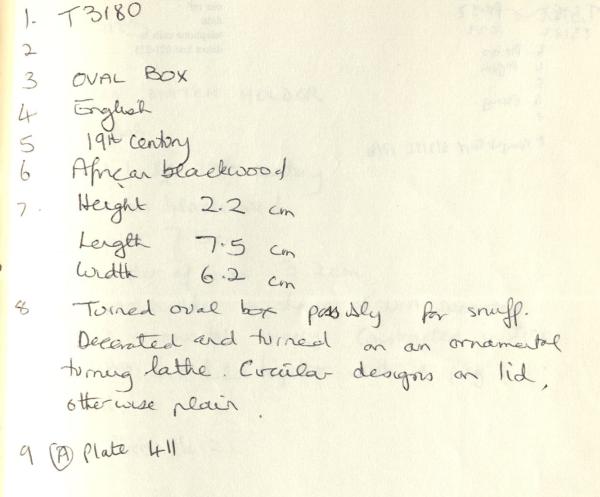 1. T3180
2
3 OVAL BOX
4 English
5 19th Century
6 African blackwood
7. Height 2.2 cm
Length 7.5 cm
Width 6.2 cm
8 Turned oval box possibly for snuff.
Decorated and turned on an ornamental
turning lathe. Circular designs on lid,
otherwise plain.
9 (A) Plate 411